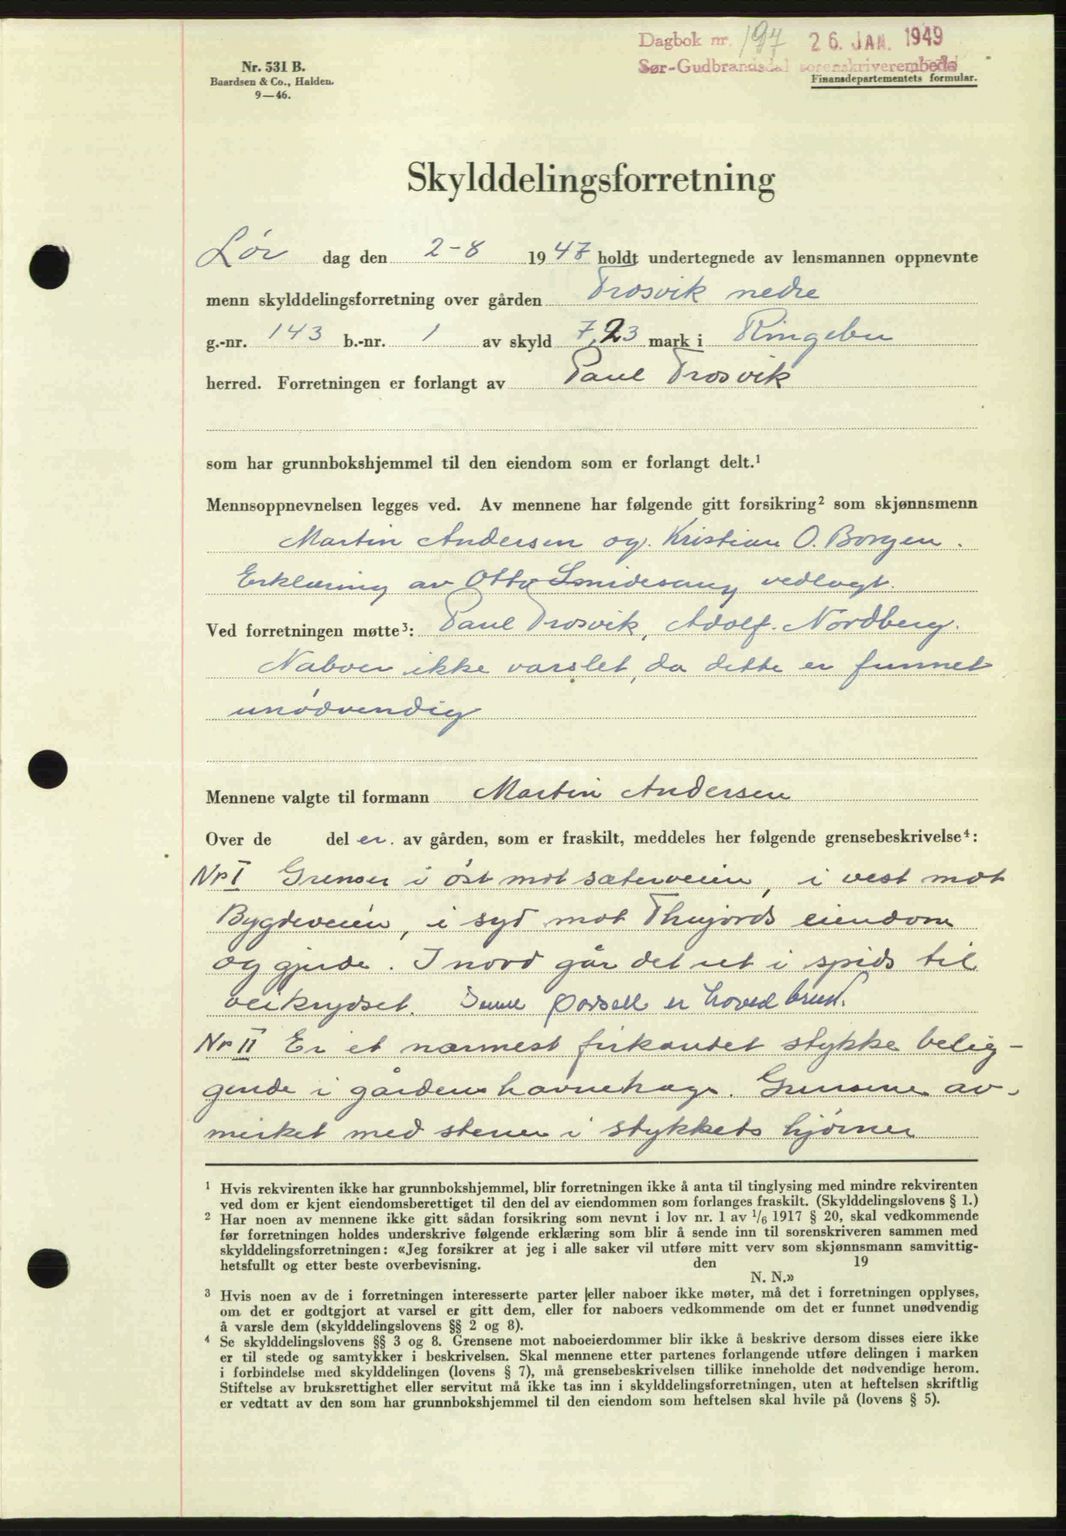 Nr. 531 B.
Baardsen & Co., Halden.
9—46.
Dagbok nr. 197 26. JAN. 1949
Sør-Gudbrandsdal sorenskriverembede
Finansdepartementets formular.
Skylddelingsforretning
Lør dag den 2-8 1947 holdt undertegnede av lensmannen oppnevnte
menn skylddelingsforretning over gården Trosvik nedre
g.-nr. 143 b.-nr. 1 av skyld 7,23 mark i Ringebu
herred. Forretningen er forlangt av Paul Trosvik
som har grunnbokshjemmel til den eiendom som er forlangt delt.¹
Mennsoppnevnelsen legges ved. Av mennene har følgende gitt forsikring² som skjønnsmenn
Martin Andersen og Kristian O. Borgen.
Erklæring av Otto vedlagt.
Ved forretningen møtte³: Paul Trosvik, Adolf Nordberg.
Naboer ikke varslet, da dette er funnet
unødvendig
Mennene valgte til formann Martin Andersen
Over de del er. av gården, som er fraskilt, meddeles her følgende grensebeskrivelse⁴:
Nr I Grenser i øst mot sæterveien, i vest mot
Bygdeveien, i syd mot eiendom
og gjerde. I nord går det ut i spids til
veikrydset. Denne parsell er hovedbruk.
Nr II Er et nærmest firkantet stykke belig-
gende i gårdens havnehage. Grensene av-
merket med stener i stykkets hjørner
¹ Hvis rekvirenten ikke har grunnbokshjemmel, blir forretningen ikke å anta til tinglysing med mindre rekvirenten
ved dom er kjent eiendomsberettiget til den del av eiendommen som forlanges fraskilt. (Skylddelingslovens § 1.)
² Har noen av mennene ikke gitt sådan forsikring som nevnt i lov nr. 1 av 1/6 1917 § 20, skal vedkommende
før forretningen holdes underskrive følgende erklæring som blir å sende inn til sorenskriveren sammen med
skylddelingsforretningen: «Jeg forsikrer at jeg i alle saker vil utføre mitt verv som skjønnsmann samvittig-
hetsfullt og etter beste overbevisning. den 19
N. N.»
³ Hvis noen av de i forretningen interesserte parter eller naboer ikke møter, må det i forretningen opplyses,
om det er godtgjort at varsel er gitt dem, eller for naboers vedkommende om det er funnet unødvendig
å varsle dem (skylddelingslovens §§ 2 og 8).
⁴ Se skylddelingslovens §§ 3 og 8. Grensene mot naboeierdommer blir ikke å beskrive dersom disses eiere ikke
er til stede og samtykker i beskrivelsen. Skal mennene etter partenes forlangende utføre delingen i marken
i forbindelse med skylddelingen (lovens § 7), må grensebeskrivelsen tillike inneholde det nødvendige herom.
Stiftelse av bruksrettighet eller servitut må ikke tas inn i skylddelingsforretningen, uten at heftelsen skriftlig
er vedtatt av den som har grunnbokshjemmel til den eiendom som heftelsen skal hvile på (lovens § 5).